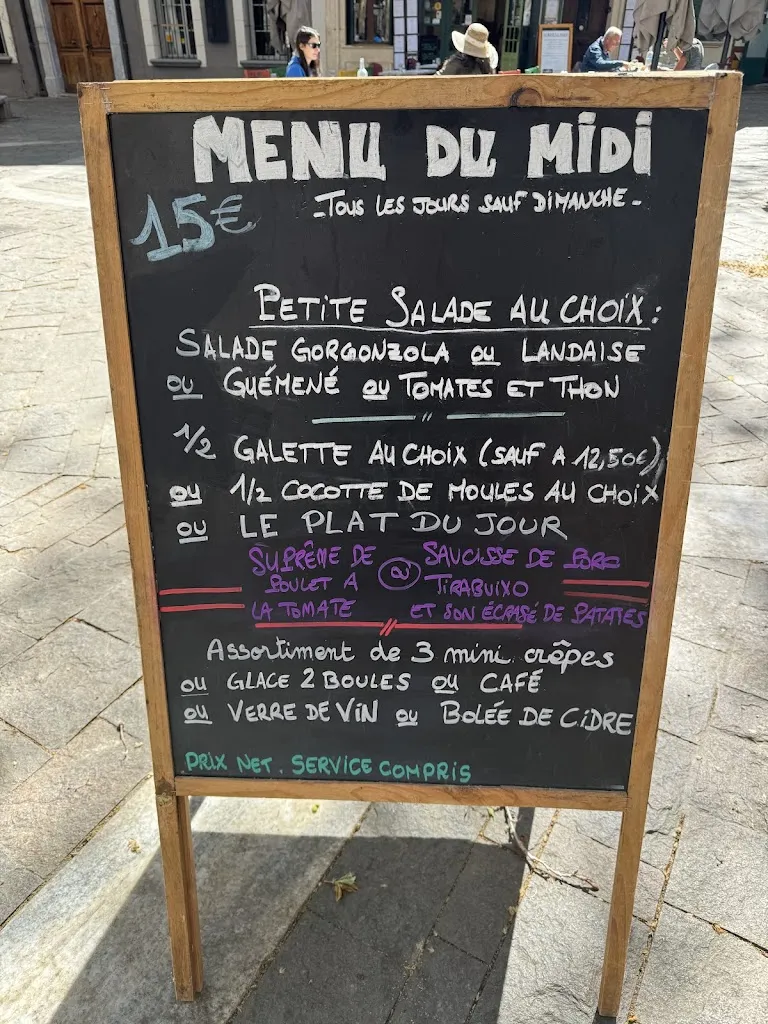 MENU DU MiDi
15€
-TOUS LES JOURS SAUF DIMANCHE-
PETITE SALADE AU CHOIX :
SALADE GORGONZOLA OU LANDAISE
OU GUÉMENÉ OU TOMATES ET THON
1/2 GALETTE AU CHOIX (SAUF A 12,50€)
OU 1/2 COCOTTE DE MOULES AU CHOIX
OU LE PLAT DU JOUR
SUPRÊME DE
POULET A
LA TOMATE
OU
SAUCISSE DE PORC
TIRABUIXO
ET SON ÉCRASÉ DE PATATES
Assortiment de 3 mini crêpes
OU GLACE 2 BOULES OU CAFÉ
OU VERRE DE ViN OU BOLÉE DE CiDRE
PRIX NET. SERVICE COMPRIS